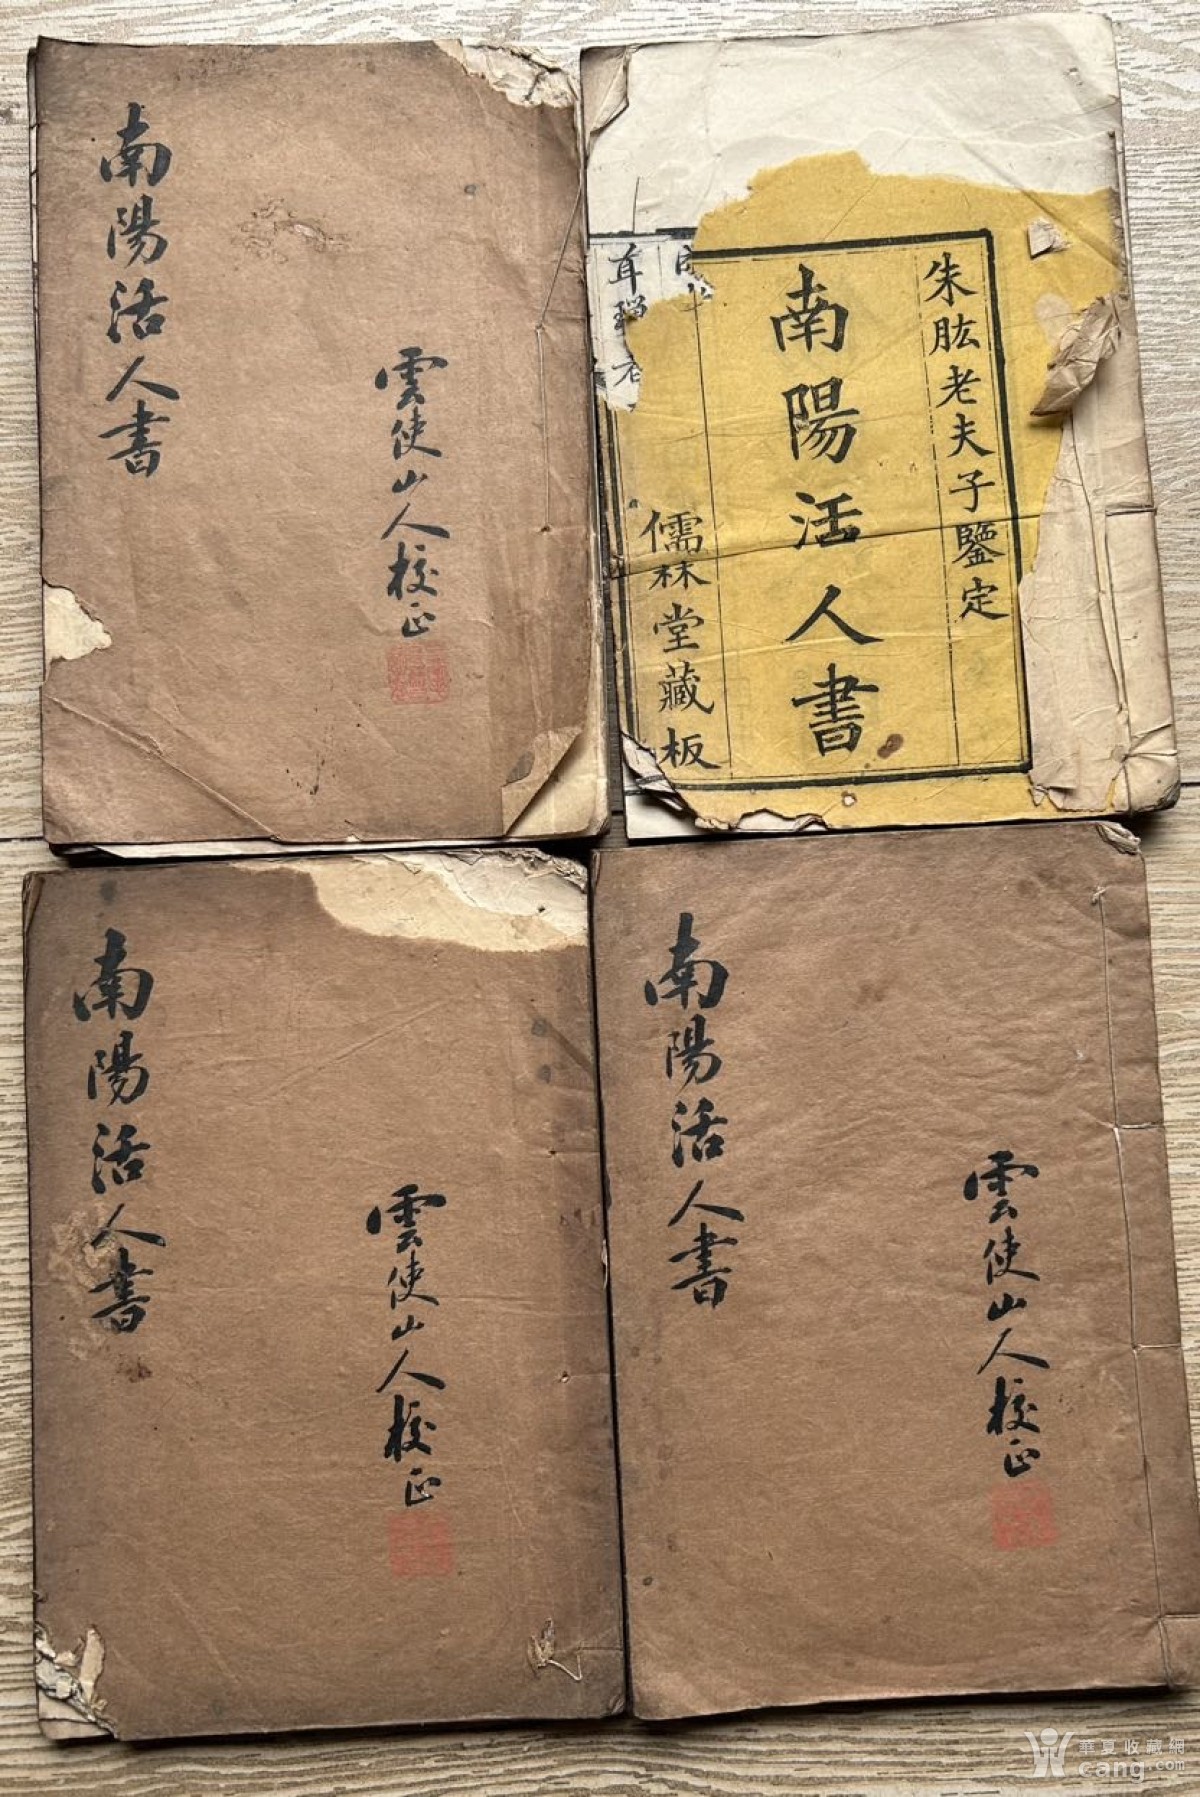 南陽活人書
雲使山人校正
朱肱老夫子鑒定
南陽活人書
儒林堂藏板
南陽活人書
雲使山人校正
南陽活人書
雲使山人校正
華夏收藏網
cang.com